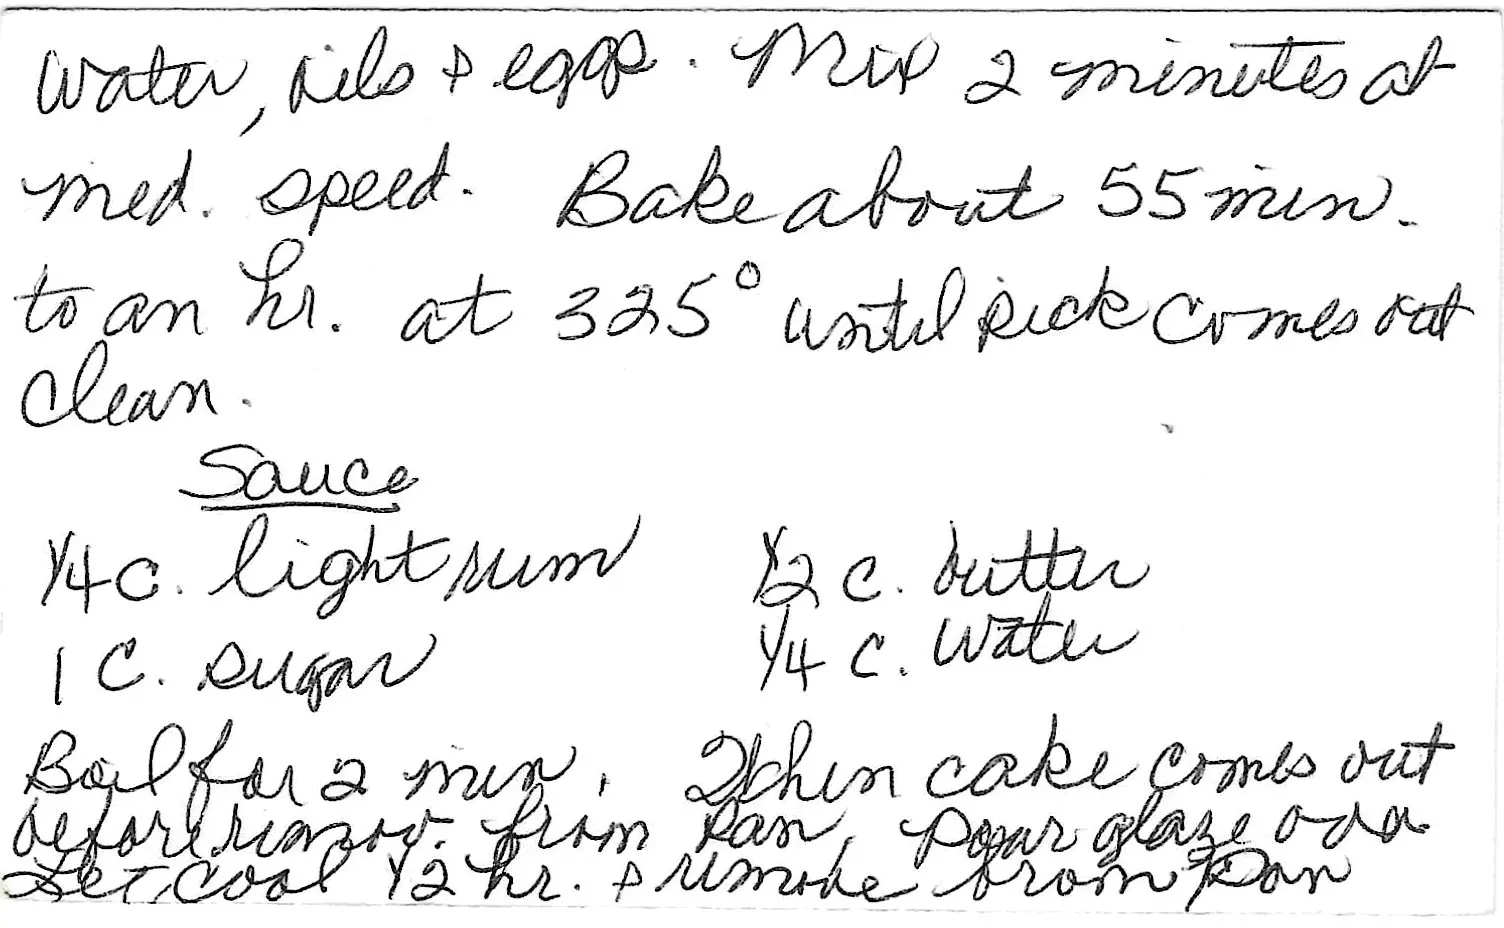 Water, oils + eggs. Mix 2 minutes at
med. speed. Bake about 55 min.
to an hr. at 325° until pick comes out
clean.
Sauce
1/4 c. light rum 1/2 c. butter
1 C. sugar 1/4 c. water
Boil for 2 min. When cake comes out
before remov. from pan, pour glaze over
Let cool 1/2 hr. + remove from pan